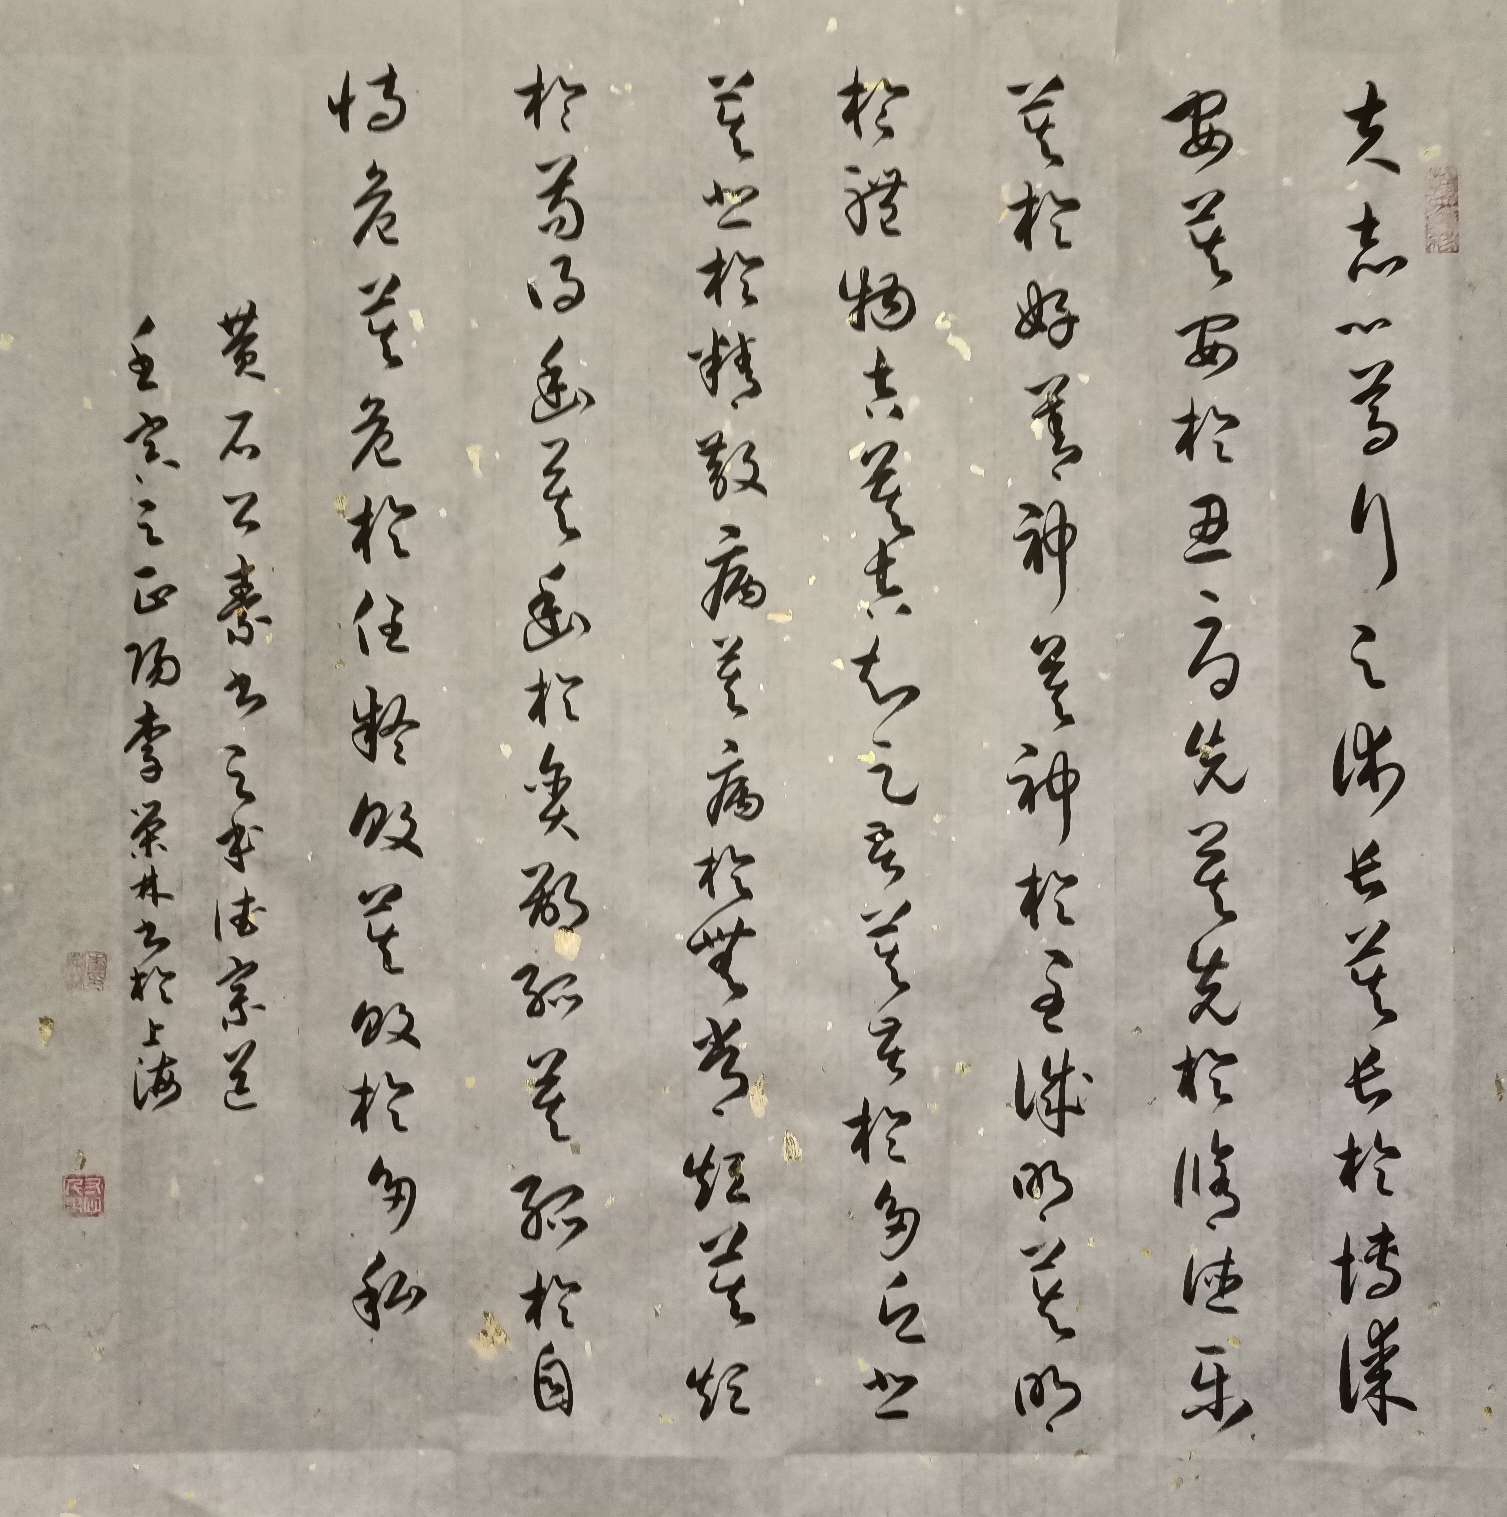 夫志心篤行之術長莫長於博謀
安莫安於忍辱先莫先於脩德樂
莫於好善神莫神於至誠明莫明
於體物吉莫吉知足苦莫苦於多願悲
莫悲於精散病莫病於無常短莫短
於苟得幽莫幽於貪鄙孤莫孤於自
恃危莫危於任疑敗莫敗於多私
黄石公素書之本德宗道
壬寅之正陽李榮林書於上海